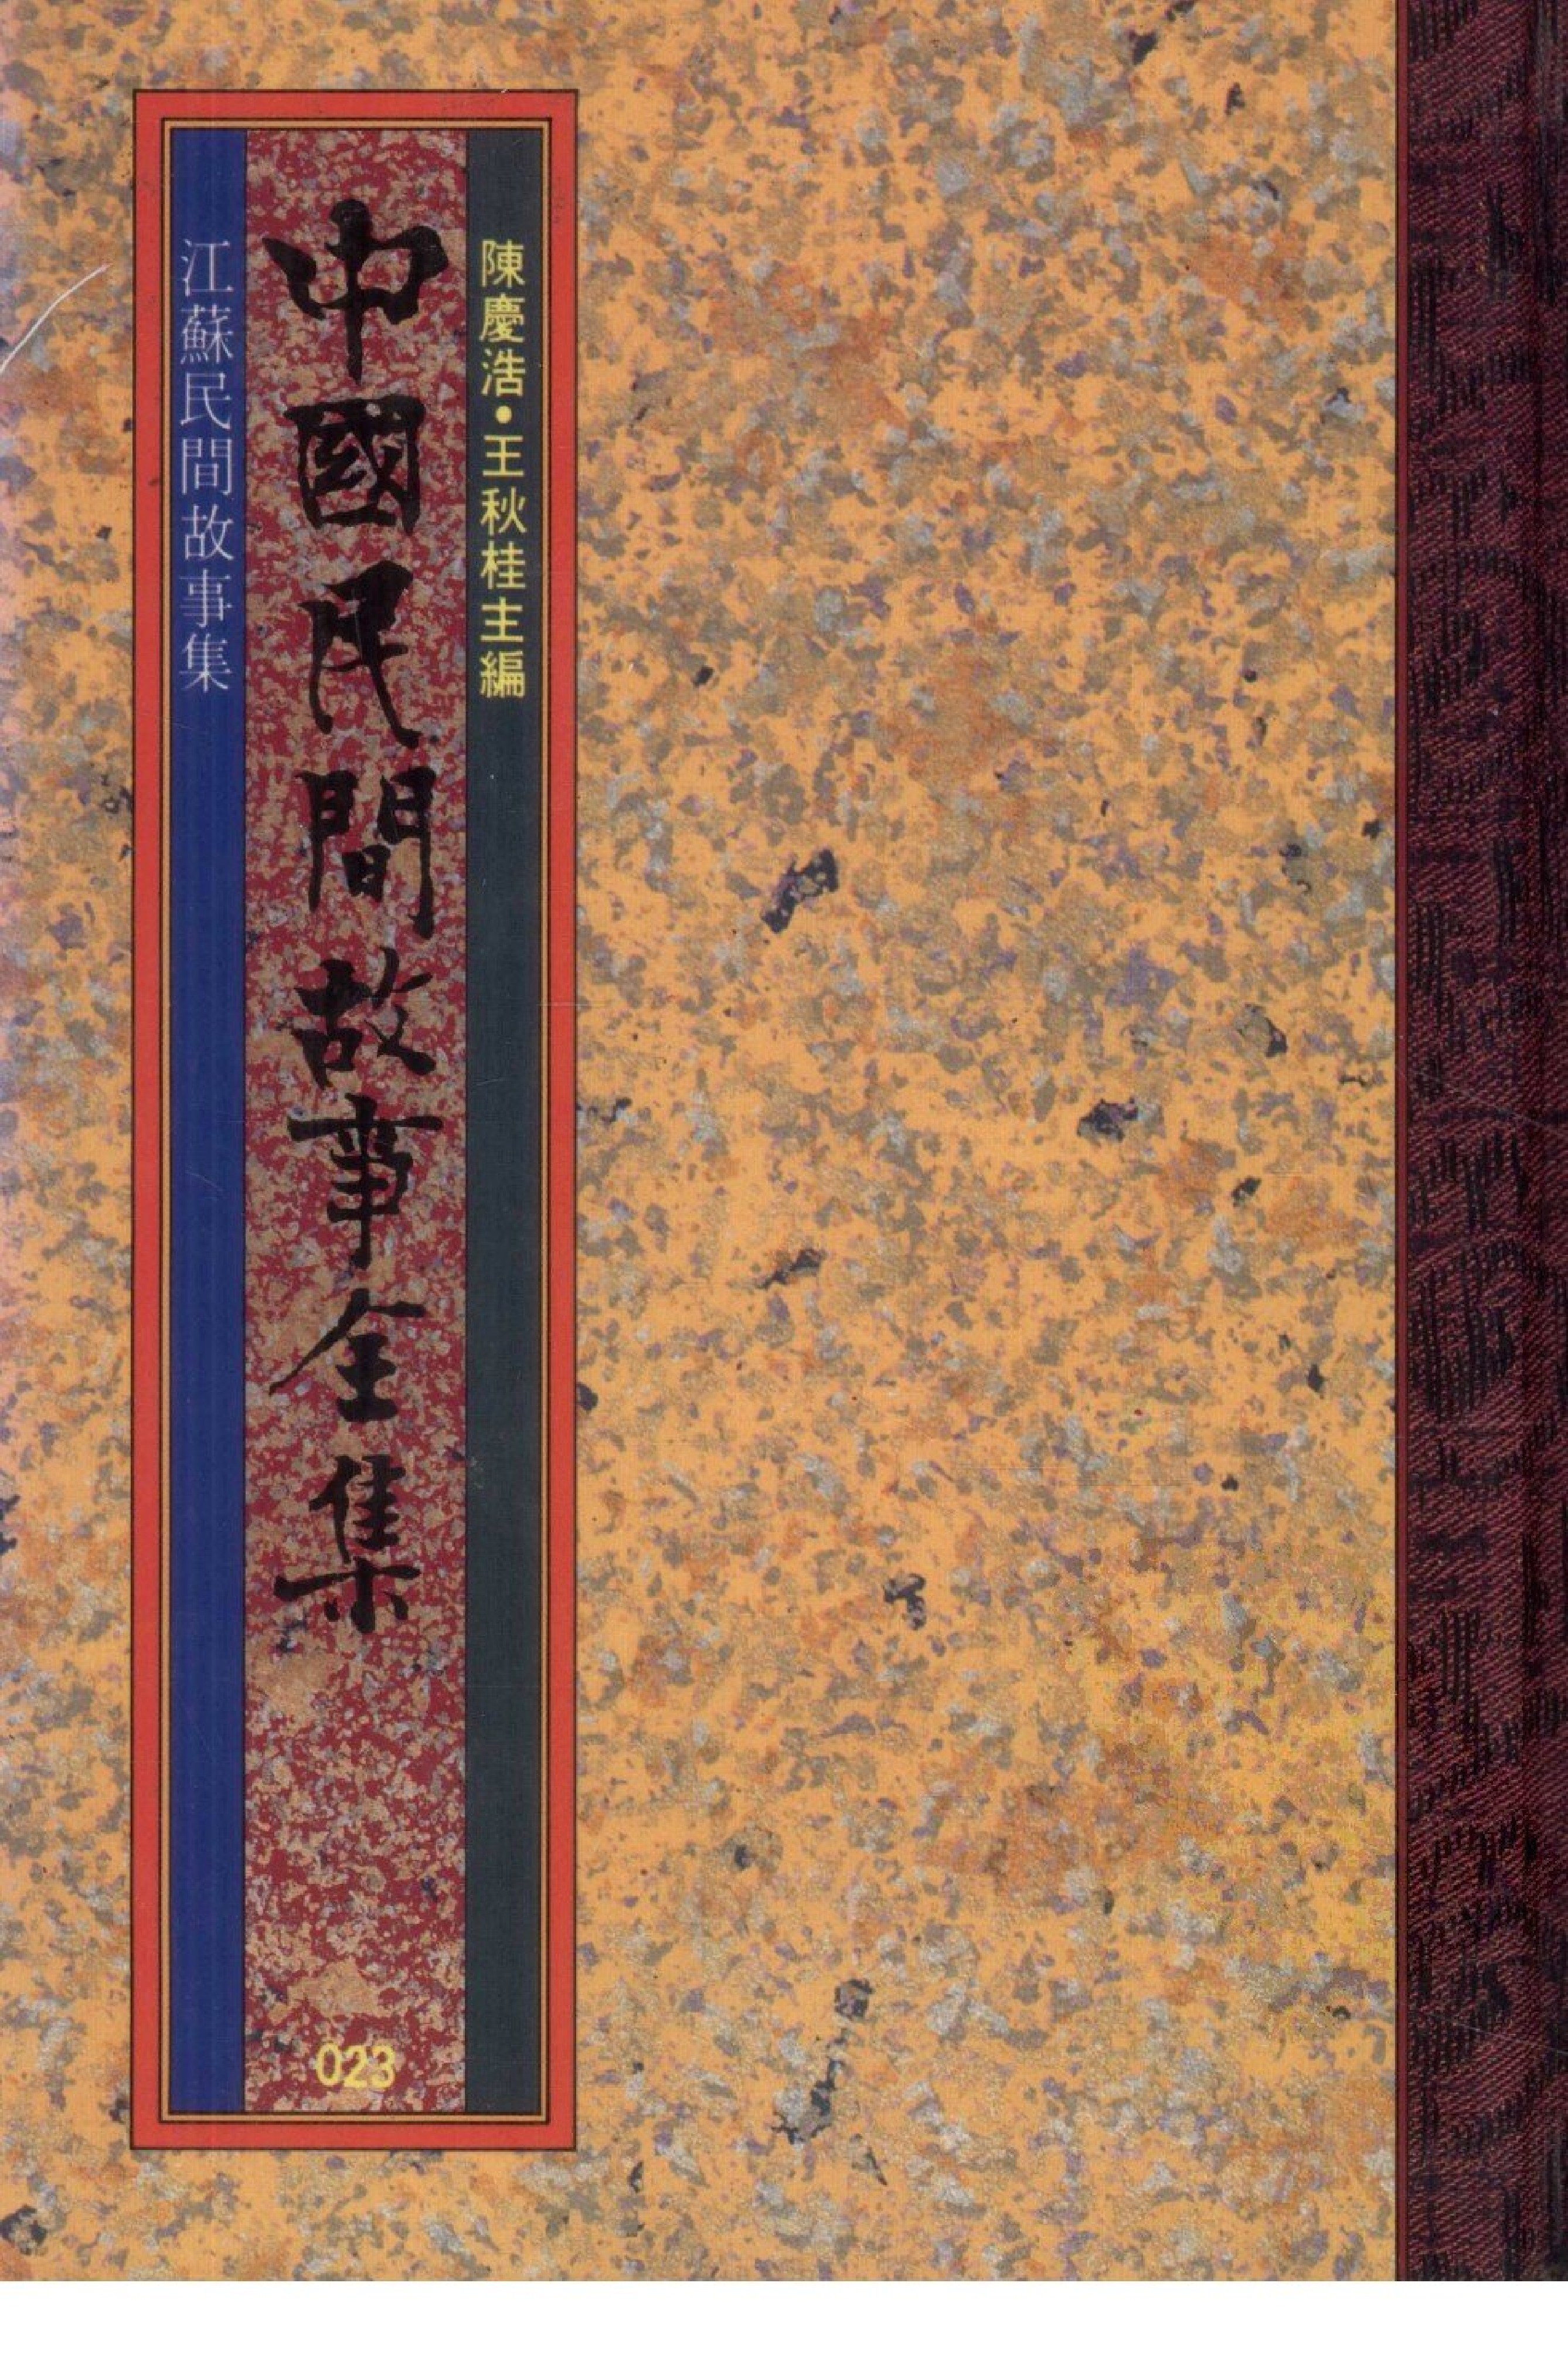 陳慶浩•王秋桂主編
中國民間故事全集
023
江蘇民間故事集